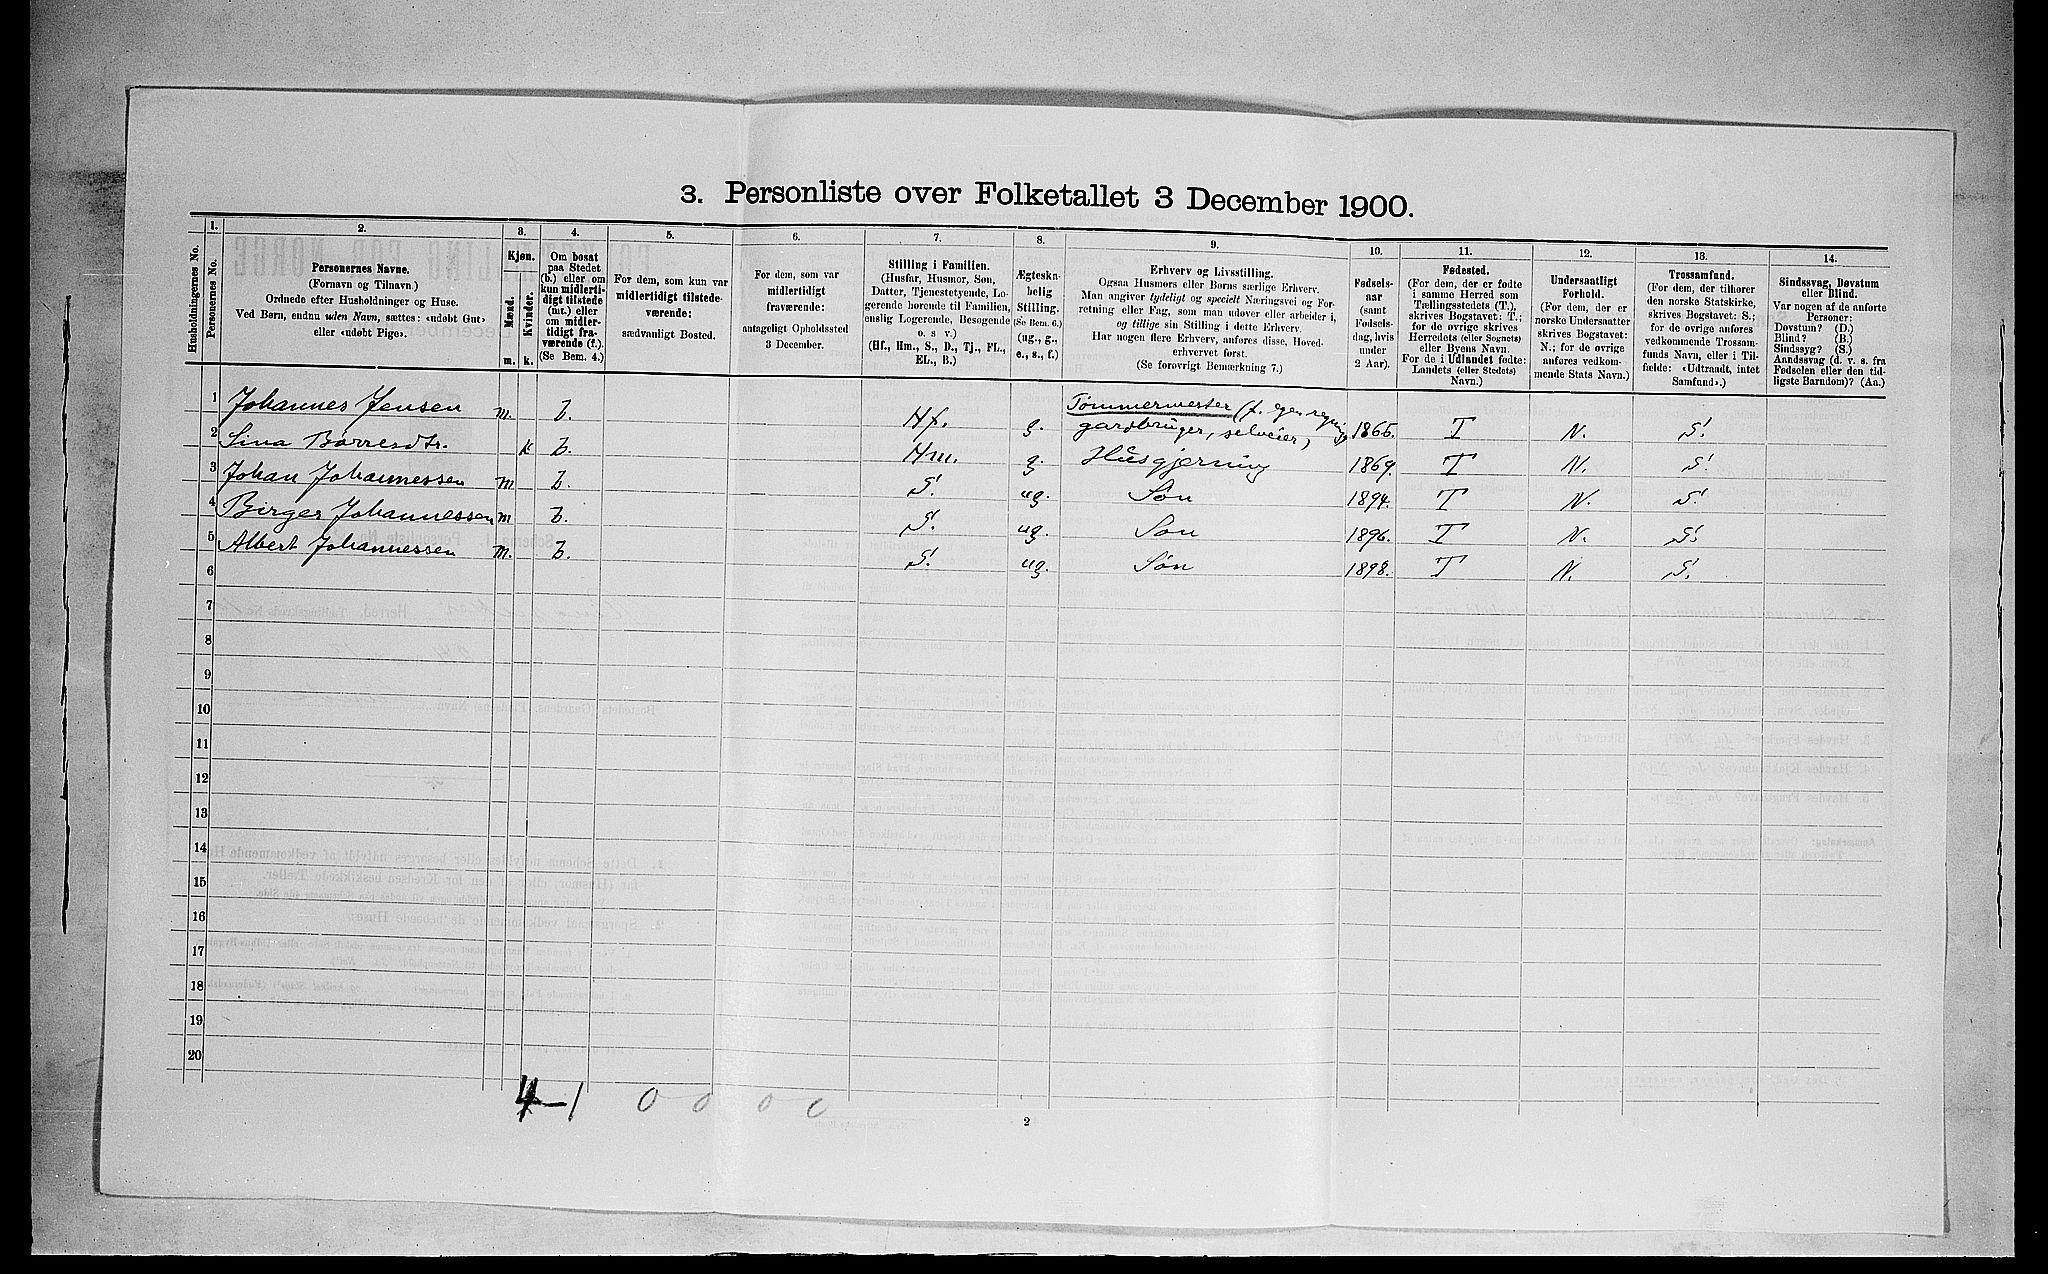 3. Personliste over Folketallet 3 December 1900.
Husholdningernes No.
1.
Personernes No.
2.
Personernes Navne.
(Fornavn og Tilnavn.)
Ordnede efter Husholdninger og Huse.
Ved Børn, endnu uden Navn, sættes: «udøbt Gut»
eller «udøbt Pige».
3.
Kjøn.
Mænd.
Kvinder.
m. k.
4.
Om bosat
paa Stedet
(b.) eller om
kun midlerti-
digt tilstede
(mt.) eller
om midler-
tidigt fra-
værende (f.).
(Se Bem. 4.)
5.
For dem, som kun var
midlertidigt tilstede-
værende:
sædvanligt Bosted.
6.
For dem, som var
midlertidigt
fraværende:
antageligt Opholdssted
3 December.
7.
Stilling i Familien.
(Husfar, Husmor, Søn,
Datter, Tjenestetyende, Lo-
gerende hørende til Familien,
enslig Logerende, Besøgende
o. s v.)
(Hf., Hm., S., D., Tj., FL.,
EL., B.)
8.
Ægteska-
belig
Stilling.
(Se Bem. 6.)
(ug., g.,
e., s., f.)
9.
Erhverv og Livsstilling.
Ogsaa Husmors eller Børns særlige Erhverv.
Man angiver tydeligt og specielt Næringsvei og For-
retning eller Fag, som man udøver eller arbeider i,
og tillige sin Stilling i dette Erhverv.
Har nogen flere Erhverv, anføres disse, Hoved-
erhvervet først.
(Se forøvrigt Bemærkning 7.)
10.
Fødsels-
aar
(samt
Fødsels-
dag, hvis
under
2 Aar).
11.
Fødested.
(For dem, der er fødte
i samme Herred som
Tællingsstedets (T.),
skrives Bogstavet: T.;
for de øvrige skrives
Herredets (eller Sognets)
eller Byens Navn.
For de i Udlandet fødte:
Landets (eller Stedets)
Navn.)
12.
Undersaatligt
Forhold.
(For dem, der er
norske Undersaatter
skrives Bogstavet:
N.; for de øvrige
anføres vedkom-
mende Stats Navn.)
13.
Trossamfund.
(For dem, der tilhører
den norske Statskirke,
skrives Bogstavet: S.;
for de øvrige anføres
vedkommende Trossam-
funds Navn, eller i Til-
fælde: «Udtraadt, intet
Samfund».)
14.
Sindssvag, Døvstum
eller Blind.
Var nogen af de anførte
Personer:
Døvstum? (D.)
Blind? (B.)
Sindssyg? (S.)
Aandssvag (d. v. s. fra
Fødselen eller den tid-
ligste Barndom)? (Aa.)
1 Johannes Jensen m. b. Hf. g. Tømmermester (f. egen regning) gardbruger, selveier, 1865. T N. S.
2 Sina Børresdtr. k b. Hm. g. Husgjerning 1869. T N. S.
3 Johan Johannessen m b. S. ug. Søn 1894. T N. S.
4 Birger Johannessen m b. S. ug. Søn 1896. T N. S.
5 Albert Johannessen m. b. S. ug. Søn 1898. T N. S.
6
7
8
9
10
11
12
13
14
15
16
17
18
19
20
4-1 0 0 0 0
2